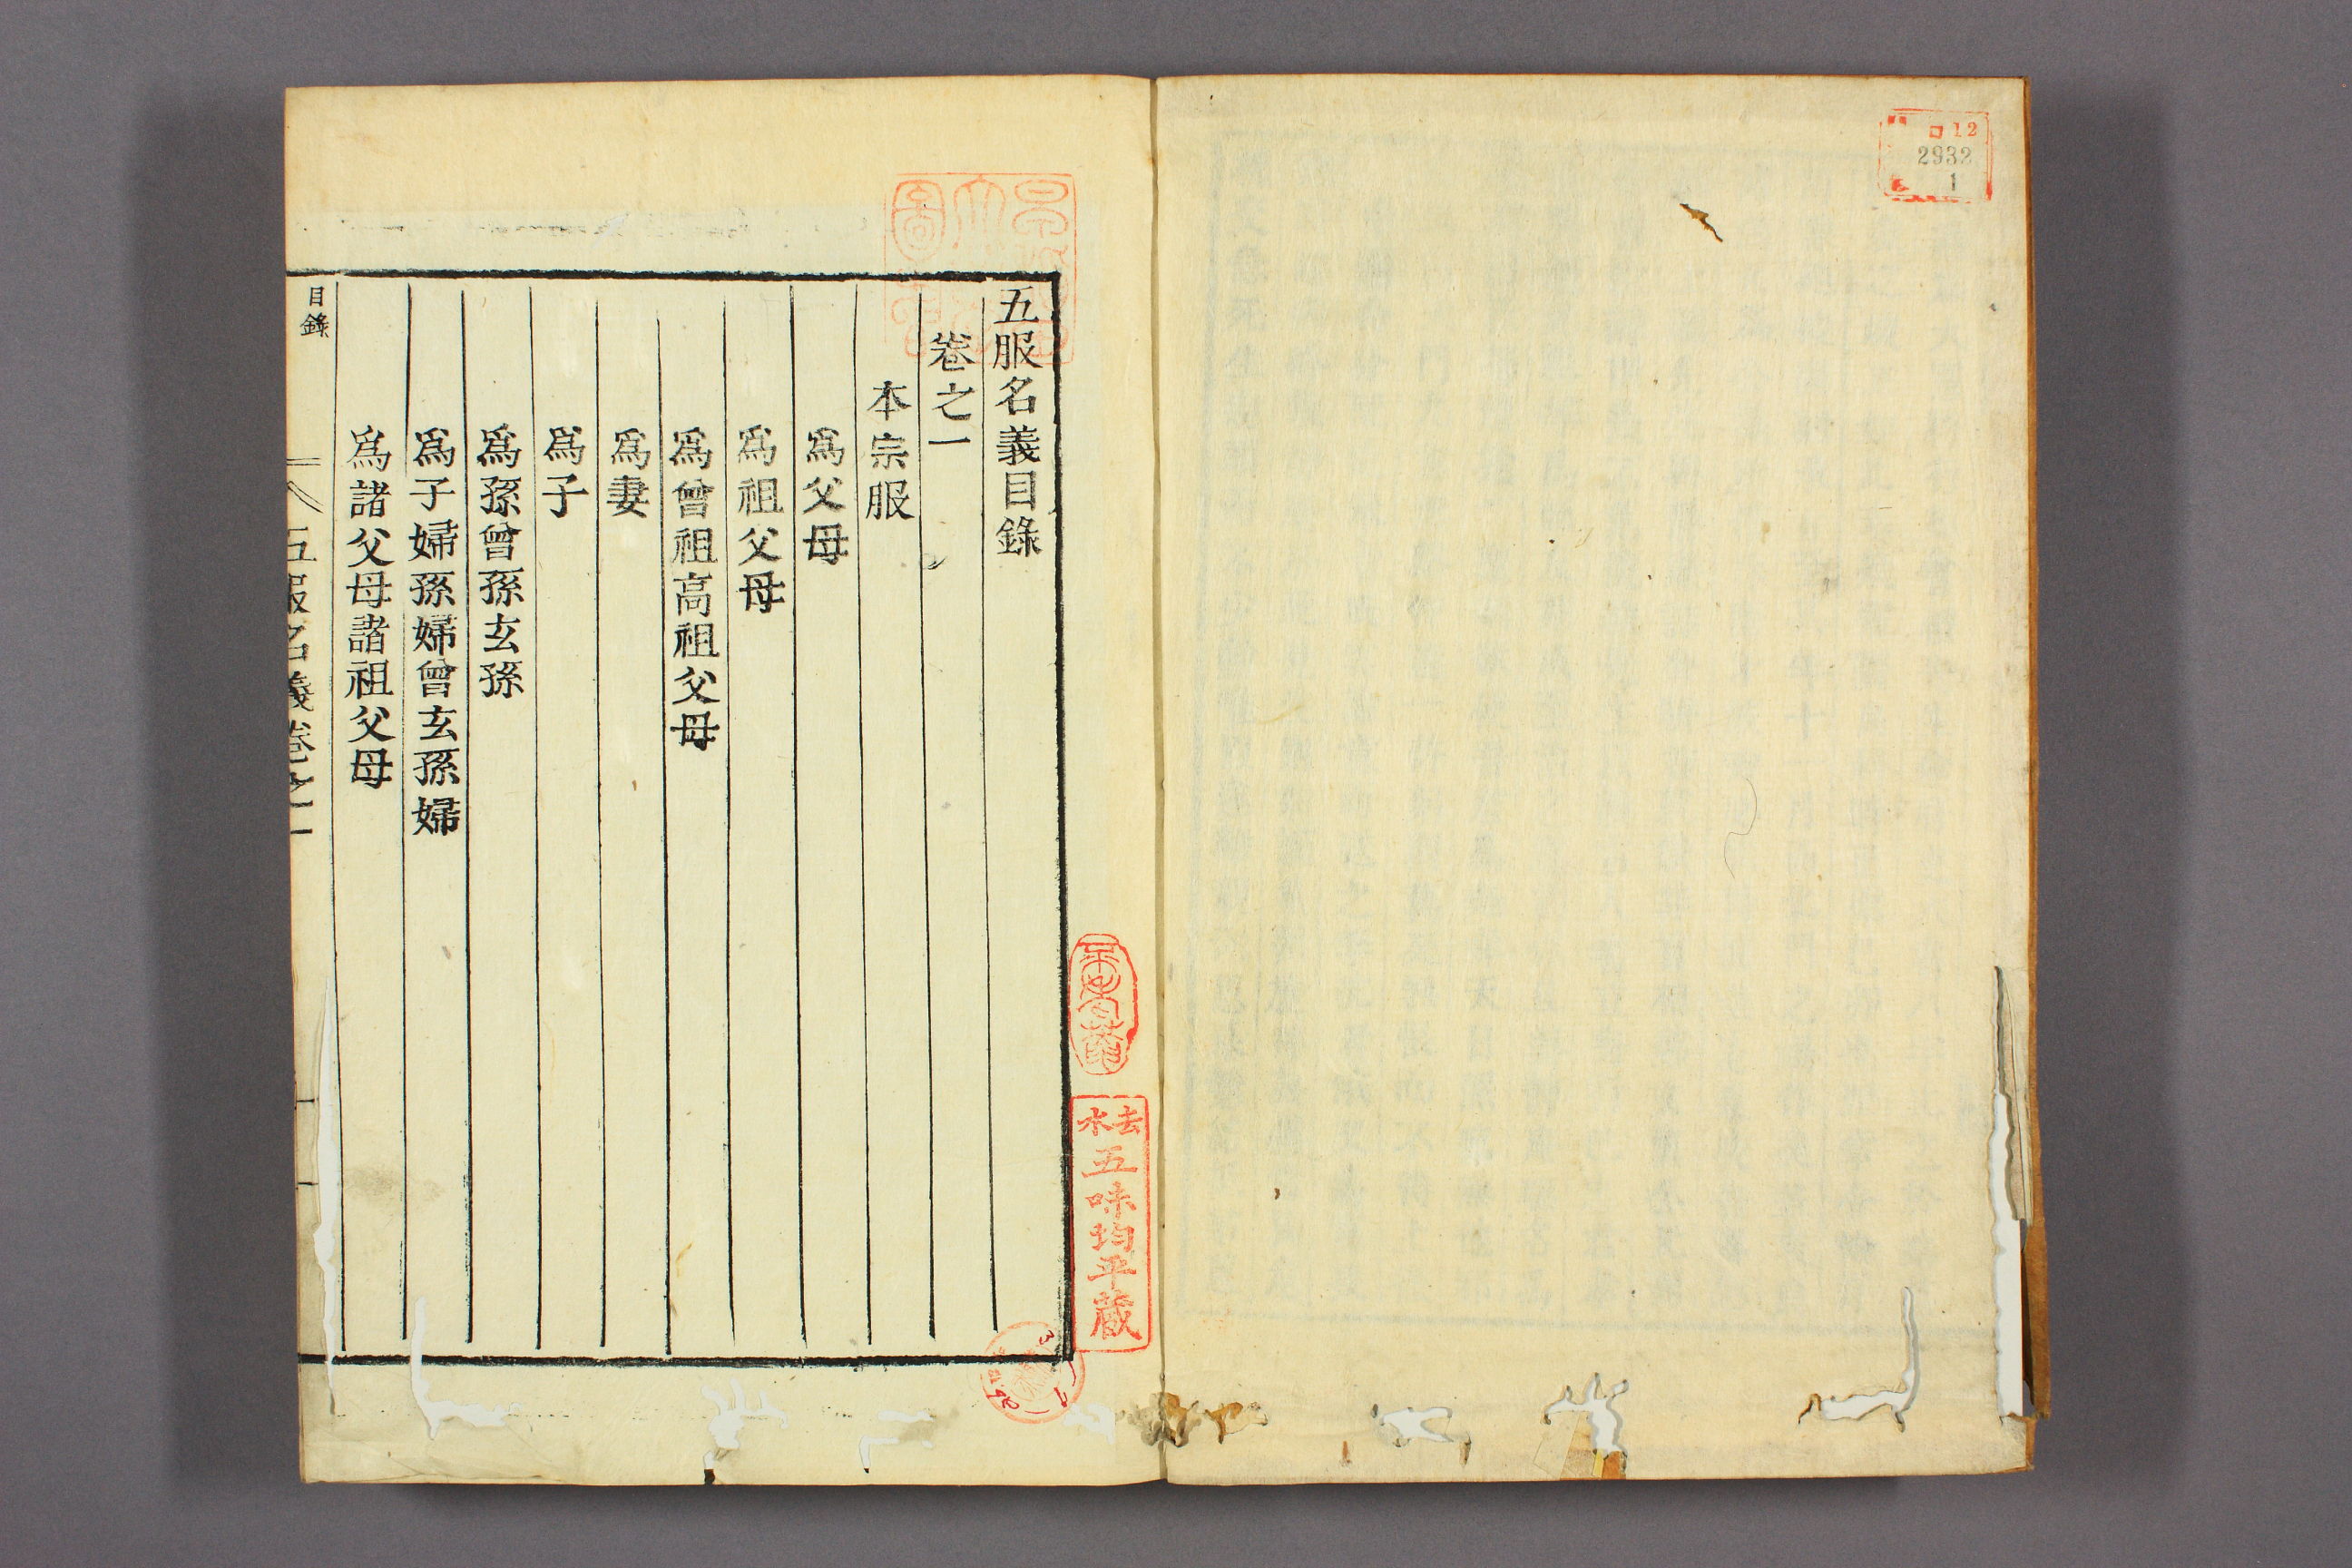 口12
2932
1
五服名義目錄
卷之一
本宗服
爲父母
爲祖父母
爲曾祖高祖父母
爲妻
爲子
爲孫曾孫玄孫
爲子婦孫婦曾玄孫婦
爲諸父母諸祖父母
目錄
五服名義卷之一
去水
五味均平蔵